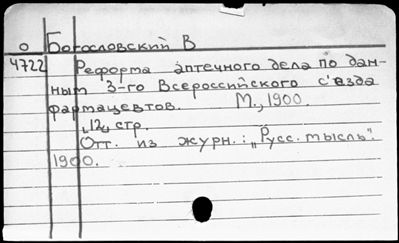 о Богословский В
4722 Реформа аптечного дела по дан-
ным 3-го Всероссийского съезда
фармацевтов. М., 1900.
„12„ стр.
Отт. из журн.: „Русс. мысль".
1900.